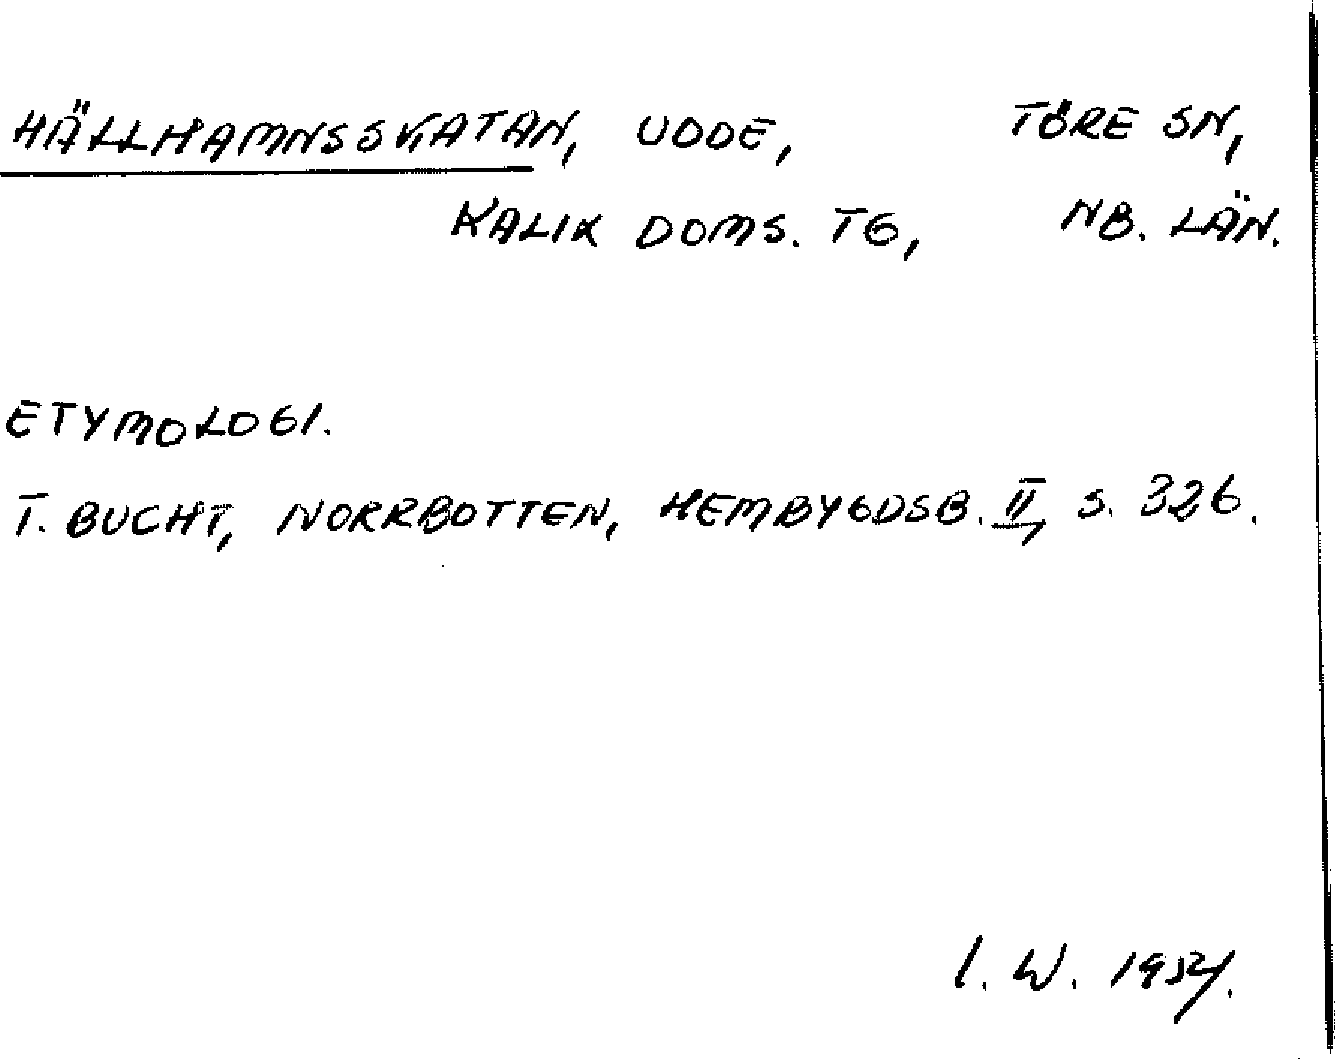 HÄLLHAMNSSKATAN, UDDE, TÖRE SN,
KALIX DOMS. TG, NB. LÄN.
ETYMOLOGI.
T. BUCHT, NORRBOTTEN, HEMBYGDSB. II, S. 326.
I. W. 1954.